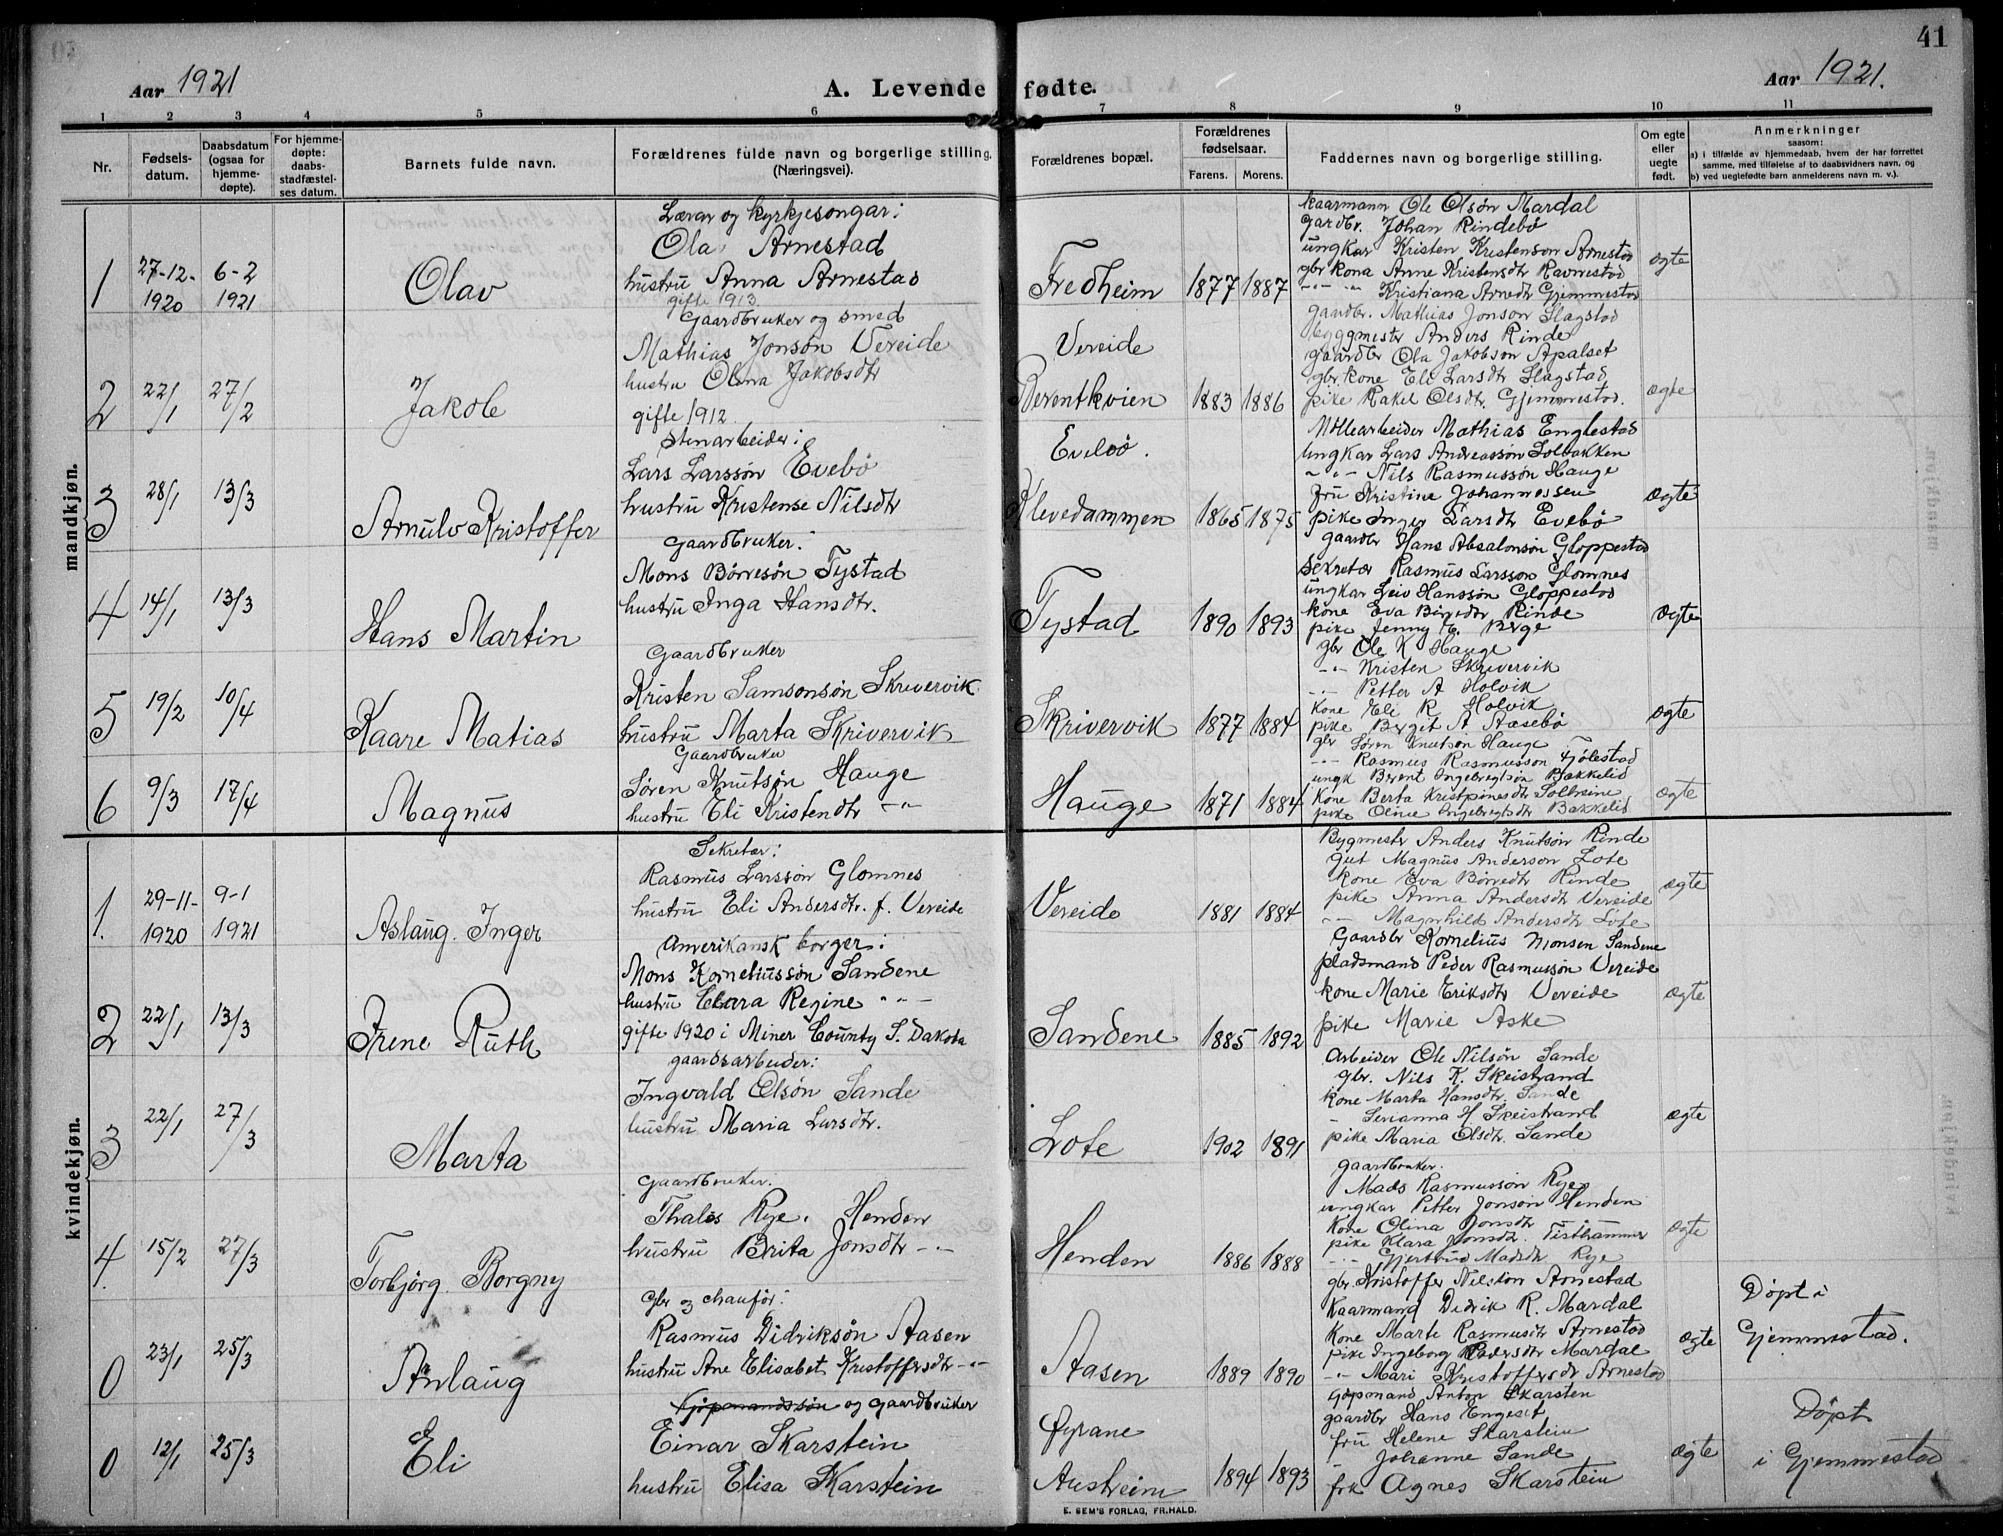 41
Aar 1921
A. Levende fødte.
Aar 1921.
1 2 3 4 5 6 7 8 9 10 11
Nr.
Fødsels-datum.
Daabsdatum (ogsaa for hjemme-døpte).
For hjemme-døpte: daabs-stadfæstel-ses datum.
Barnets fulde navn.
Forældrenes fulde navn og borgerlige stilling. (Næringsvei).
Forældrenes bopæl.
Forældrenes fødselsaar.
Farens. Morens.
Faddernes navn og borgerlige stilling.
Om egte eller uegte født.
Anmerkninger
saasom:
a) i tilfælde av hjemmedaab, hvem der har forrettet samme, med tilføielse af to daabsvidners navn, og
b) ved uegtefødte børn anmelderens navn m. v.).
mandkjøn.
1
27-12-1920
6-2 1921
Olav
Lærar og kyrkjesongar:
Ola Arnestad
hustru Anna Arnestad
gifte 1913.
Fredheim
1877 1887
Kaarmann Ole Olsøn Mardal
gardbr. Johan Rindebø
ungkar Kristen Kristenson Arnestad
gbr kona Anne Kristensdtr Ravnestad
-"- "- Kristiana Arnedtr Gjemmestad
ægte
2
22/1
27/2
Jakob
Gaardbruker og smed
Mathias Jonsøn Vereide
hustru Olina Jakobsdtr
gifte 1912.
Vereide
Berentkvien
1883 1886
gaardbr. Mathias Jonson Slagstad
byggmester Anders Rinde
gaardbr Ola Jakobson Apalset
gbr. kone Eli Larsdtr Slagstad
pike Rakel Olsdtr. Gjemmestad.
ægte
3
28/1
13/3
Arnulv Kristoffer
Stenarbeider:
Lars Larssøn Evebø
hustru Kristense Nilsdtr
Evebø.
Klevedammen
1865 1875
Møllearbeider Mathias Englestad
Ungkar Lars Andreassøn Solbakken
-"- Nils Rasmussøn Hauge
Fru Kristine Johannessen
pike Inger Larsdtr Evebø
ægte
4
14/1
13/3
Hans Martin
Gaardbruker:
Mons Børresøn Tystad
hustru Inga Hansdtr.
Tystad
1890 1893
gaardbr Hans Absalonsøn Gloppestad
Sekretær Rasmus Larsson Glomnes
ungkar Leiv Hanssøn Gloppestad
kone Eva Børredtr Rinde
pike Jenny E. Berge
ægte
5
19/2
10/4
Kaare Matias
Gaardbruker
Kristen Samsonsøn Skrivervik
hustru Marta Skrivervik
Skrivervik
1877 1884
gbr Ole K Hauge
-"- Kristen Skrivervik
-"- Petter A Holvik
Kone Eli R Holvik
pike Bergit A Aasebø
ægte
6
9/3
17/4
Magnus
Gaardbruker
Søren Knutsøn Hauge
hustru Eli Kristendtr -"-
Hauge
1871 1884
gbr Søren Knutson Hauge
-"- Rasmus Rasmusson Fjølestad
ungk Berent Ingebregtsøn Bakkelid
Kone Berta Kristpinesdtr Solheim
pike Oline Ingebregtsdtr Bakkelid
ægte
kvindekjøn.
1.
29-11-1920
9-1 1921
Aslaug Inger
Sekretær:
Rasmus Larssøn Glomnes
hustru Eli Andersdtr. f. Vereide
Vereide
1881 1884
Bygmestr Anders Knutsøn Rinde
gut Magnus Anderson Lote
kone Eva Børredtr Rinde
pike Anna Andersdtr Vereide
-"- Magnhild Andersdtr Lote
ægte
2
22/1
13/3
Irene Ruth
Amerikansk borger:
Mons Korneliussøn Sandene
hustru Clara Regine -"-
gifte 1920 i Miner County S. Dakota
Sandene
1885 1892
Gaardbr Kornelius Monsen Sandene
pladsmand Peder Rasmussøn Vereide
kone Marie Eriksdtr Vereide
pike Marie Aske
ægte
3
22/1
27/3
Marta
gaardsarbeider:
Ingvald Olsøn Sande
hustru Maria Larsdtr.
Lote
1902 1891
Arbeider Ole Nilsøn Sande
gbr. Nils K. Skeistrand
kone Marta Hansdtr. Sande
- Serianna H Skeistrand
pike Maria Olsdtr. Sande
ægte
4.
15/2
27/3
Torbjörg Borgny
Gaardbruker.
Thales Rye. Henden
hustru Brita Jonsdtr -"-
Henden
1886 1888
gaardbruker.
Mads Rasmussøn Rye
ungkar Petter Jonson Henden
Kone Olina Jonsdtr Tisthammer
pike Klara Jonsdtr.
-"- Gjertrud Madsdtr Rye
ægte
0
23/1
25/3
Anlaug
Gbr og chaufør:
Rasmus Didriksøn Aasen
hustru Ane Elisabet Kristoffersdtr -"-
Aasen
1889 1890
gbr. Kristoffer Nilsson Arnestad
Kaarmand Didrik R. Mardal
Kone Marte Rasmusdtr Arnestad
pike Ingeborg Pedersdtr Mardal
-"- Mari Kristoffersdr Arnestad
ægte
Døpt i Gjemmestad.
0
12/1
25/3
Eli
Kjøpmandssøn og gaardbruker
Einar Skarstein
hustru Elisa Skarstein
Øyrane
Austreim
1894 1893
Kjøpmand Anton Skarsten
gaardbr Hans Engeset
fru Helene Skarstein
- Johanne Sande
frk Agnes Skarstein
ægte
Døpt i Gjemmestad
E. SEM'S FORLAG, FR.HALD.